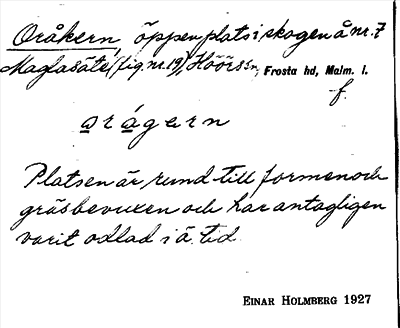 Oråkern, öppen plats i skogen å nr. 7
Maglasäte (fig. nr. 19), Höörs sn, Frosta hd, Malm. l.
f.
orågarn
Platsen är rund till formen och
gräsbevuxen och har antagligen
varit odlad i ä. tid.
EINAR HOLMBERG 1927